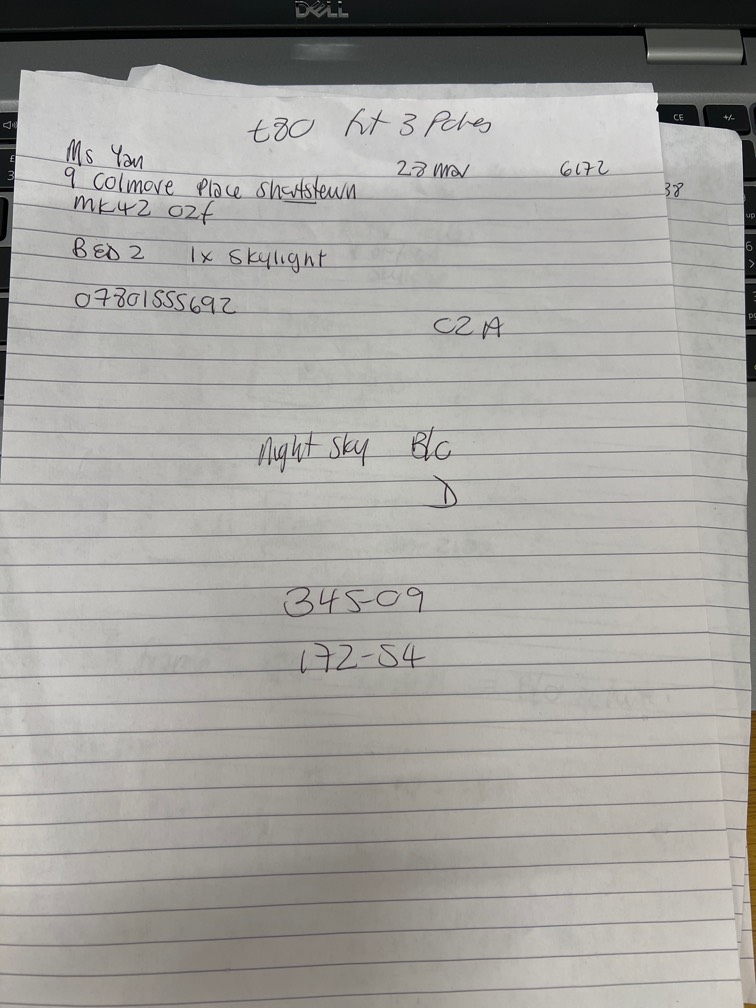 DELL
£80 fit 3 Pches
Ms Yan 23 Nov 6172
9 Colmore Place Shortstown
MK42 0ZF
38
BED 2 1x Skylight
07801555692
C2A
Night Sky B/C
D
345-09
172-54
CE +/-